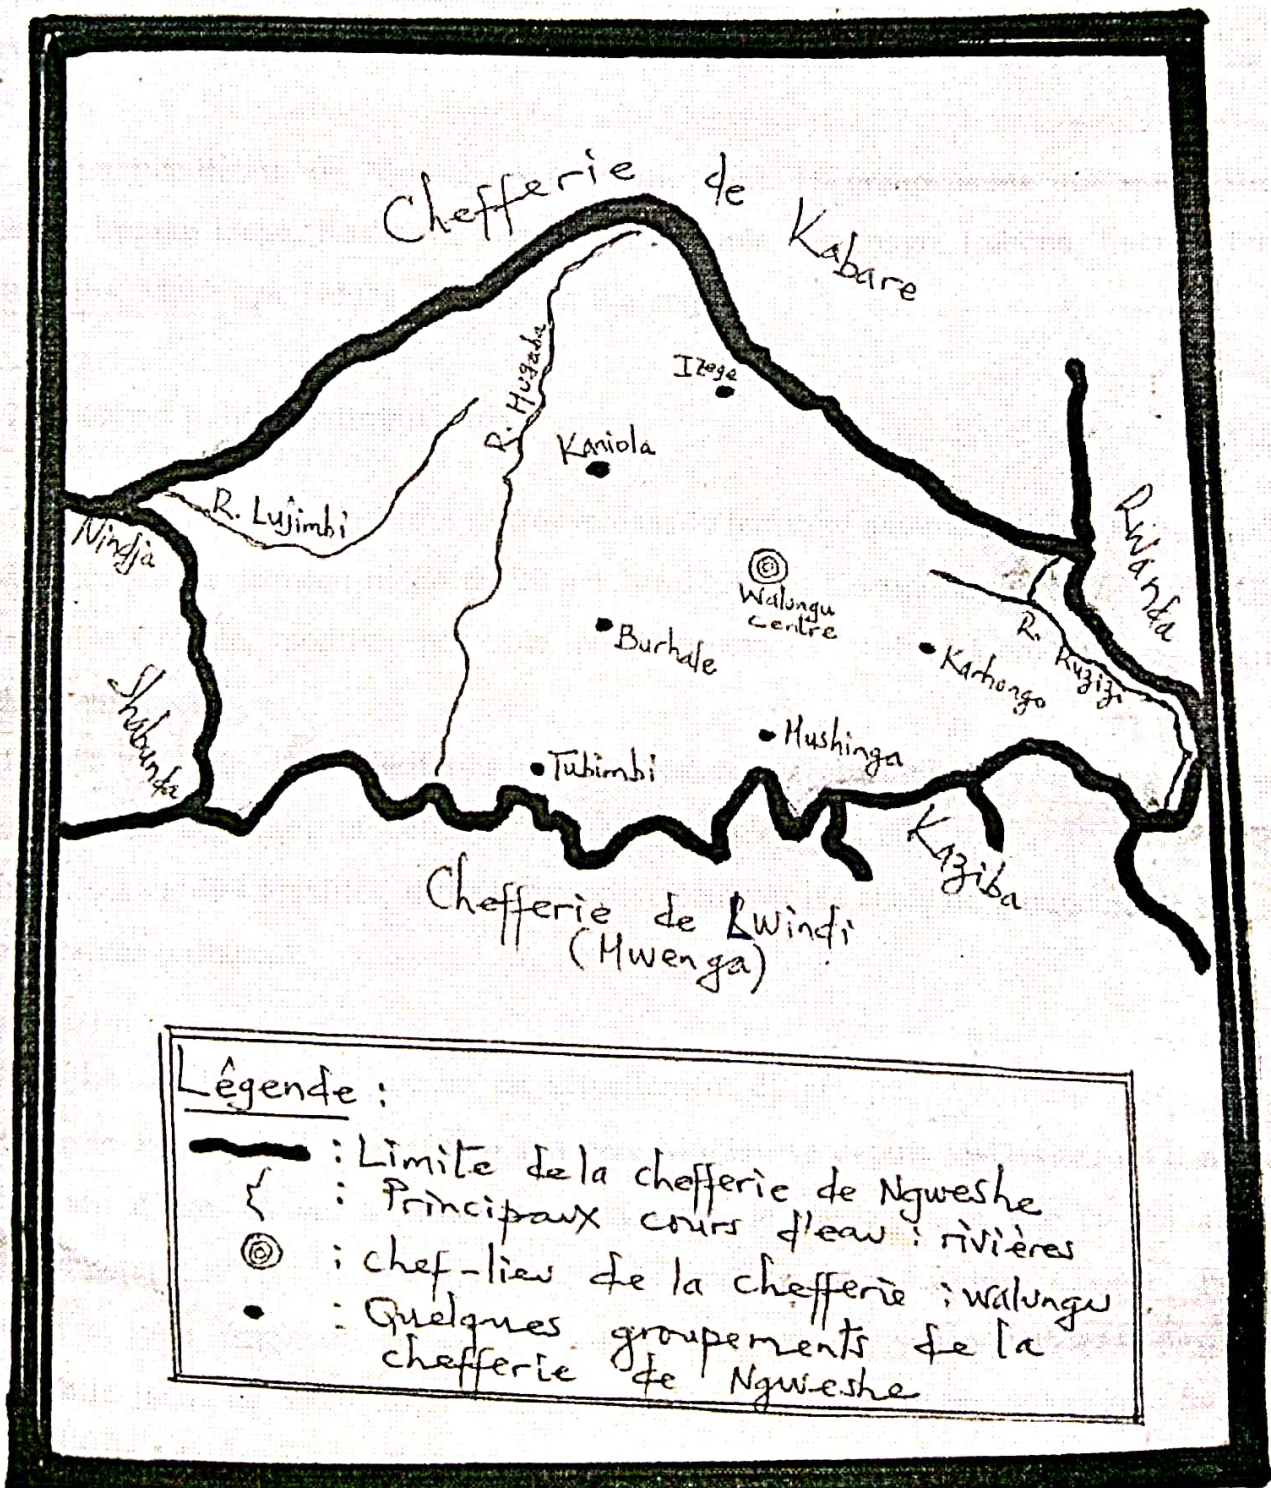 Chefferie de Kabare
Izege
R. Mugaba
Kaniola
R. Lujimbi
Nindja
Rwanda
Walungu
centre
Burhale
R. Ruzizi
Karhongo
Shabunda
Mushinga
Tubimbi
Kaziba
Chefferie de Lwindi
(Mwenga)
Légende :
: Limite de la chefferie de Ngweshe
: Principaux cours d'eau : rivières
: chef-lieu de la chefferie : walungu
: Quelques groupements de la
chefferie de Ngweshe